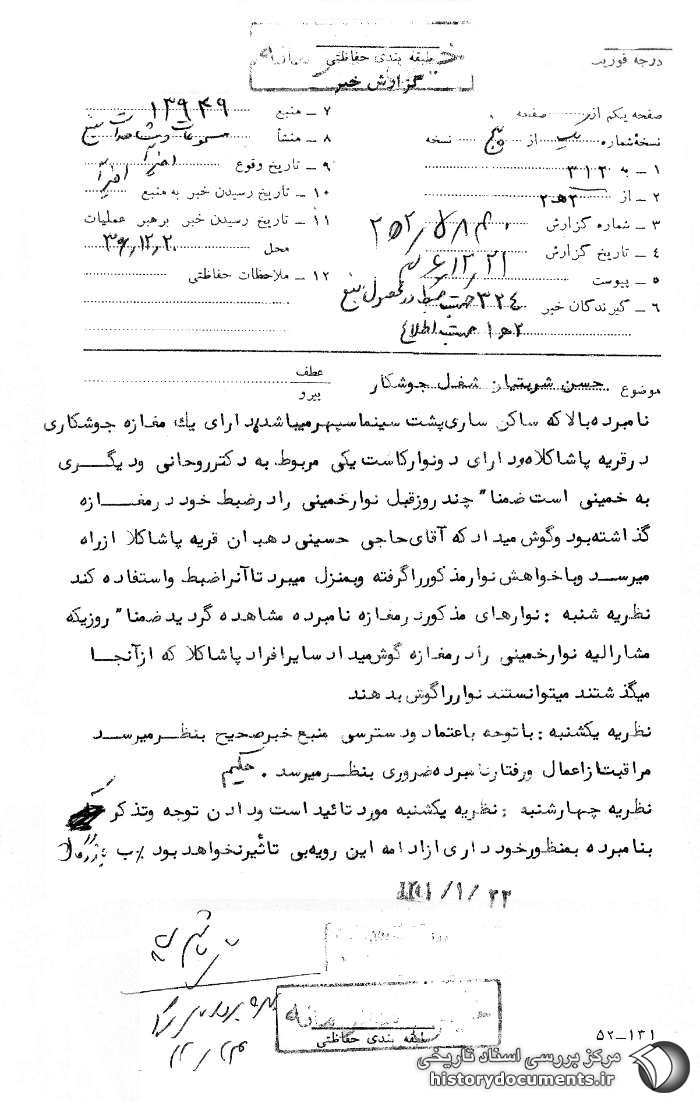 درجه فوریت
طبقه بندی حفاظتی
گزارش خبر
صفحه یکم از صفحه
نسخه شماره یک از پنج نسخه
۱ ـ به ۳۱۲
۲ ـ از ۲ﻫ۲
۳ ـ شماره گزارش
۴ ـ تاریخ گزارش
۵ ـ پیوست
۶ ـ گیرندگان خبر ۳۲۴ جهت
۲ﻫ۱ جهت اطلاع
۷ ـ منبع ۱۳۹۴۹
۸ ـ منشأ مسموعات و مشاهدات منبع
۹ ـ تاریخ وقوع اخیراً
۱۰ ـ تاریخ رسیدن خبر به منبع اخیراً
۱۱ ـ تاریخ رسیدن خبر برهبر عملیات
محل
۱۲ ـ ملاحظات حفاظتی
موضوع حسن شریتیان شغل جوشکار
عطف
پیرو
نامبرده بالا که ساکن ساری پشت سینما سپهر میباشد دارای یك مغازه جوشکاری
در قریه پاشاکلا بوده و دارای دو نوار کاست یکی مربوط به دکتر روحانی و دیگری
به خمینی است ضمنا" چند روز قبل نوار خمینی را در ضبط خود در مغازه
گذاشته بود و گوش میداد که آقای حاجی حسینی دهبان قریه پاشاکلا از راه
میرسد و با خواهش نوار مذکور را گرفته و بمنزل میبرد تا آنرا ضبط و استفاده کند
نظریه شنبه : نوارهای مذکور در مغازه نامبرده مشاهده گردید ضمنا" روزیکه
مشارالیه نوار خمینی را در مغازه گوش میداد سایر افراد پاشاکلا که از آنجا
میگذشتند میتوانستند نوار را گوش بدهند
نظریه یکشنبه : با توجه باعتماد و دسترسی منبع خبر صحیح بنظر میرسد
مراقبت از اعمال و رفتار نامبرده ضروری بنظر میرسد . حکیم
نظریه چهارشنبه : نظریه یکشنبه مورد تائید است و دادن توجه و تذکر
بنامبرده بمنظور خودداری از ادامه این رویه بی تاثیر نخواهد بود
طبقه بندی حفاظتی
۵۲ـ۱۳۱
مرکز بررسی اسناد تاریخی
historydocuments.ir